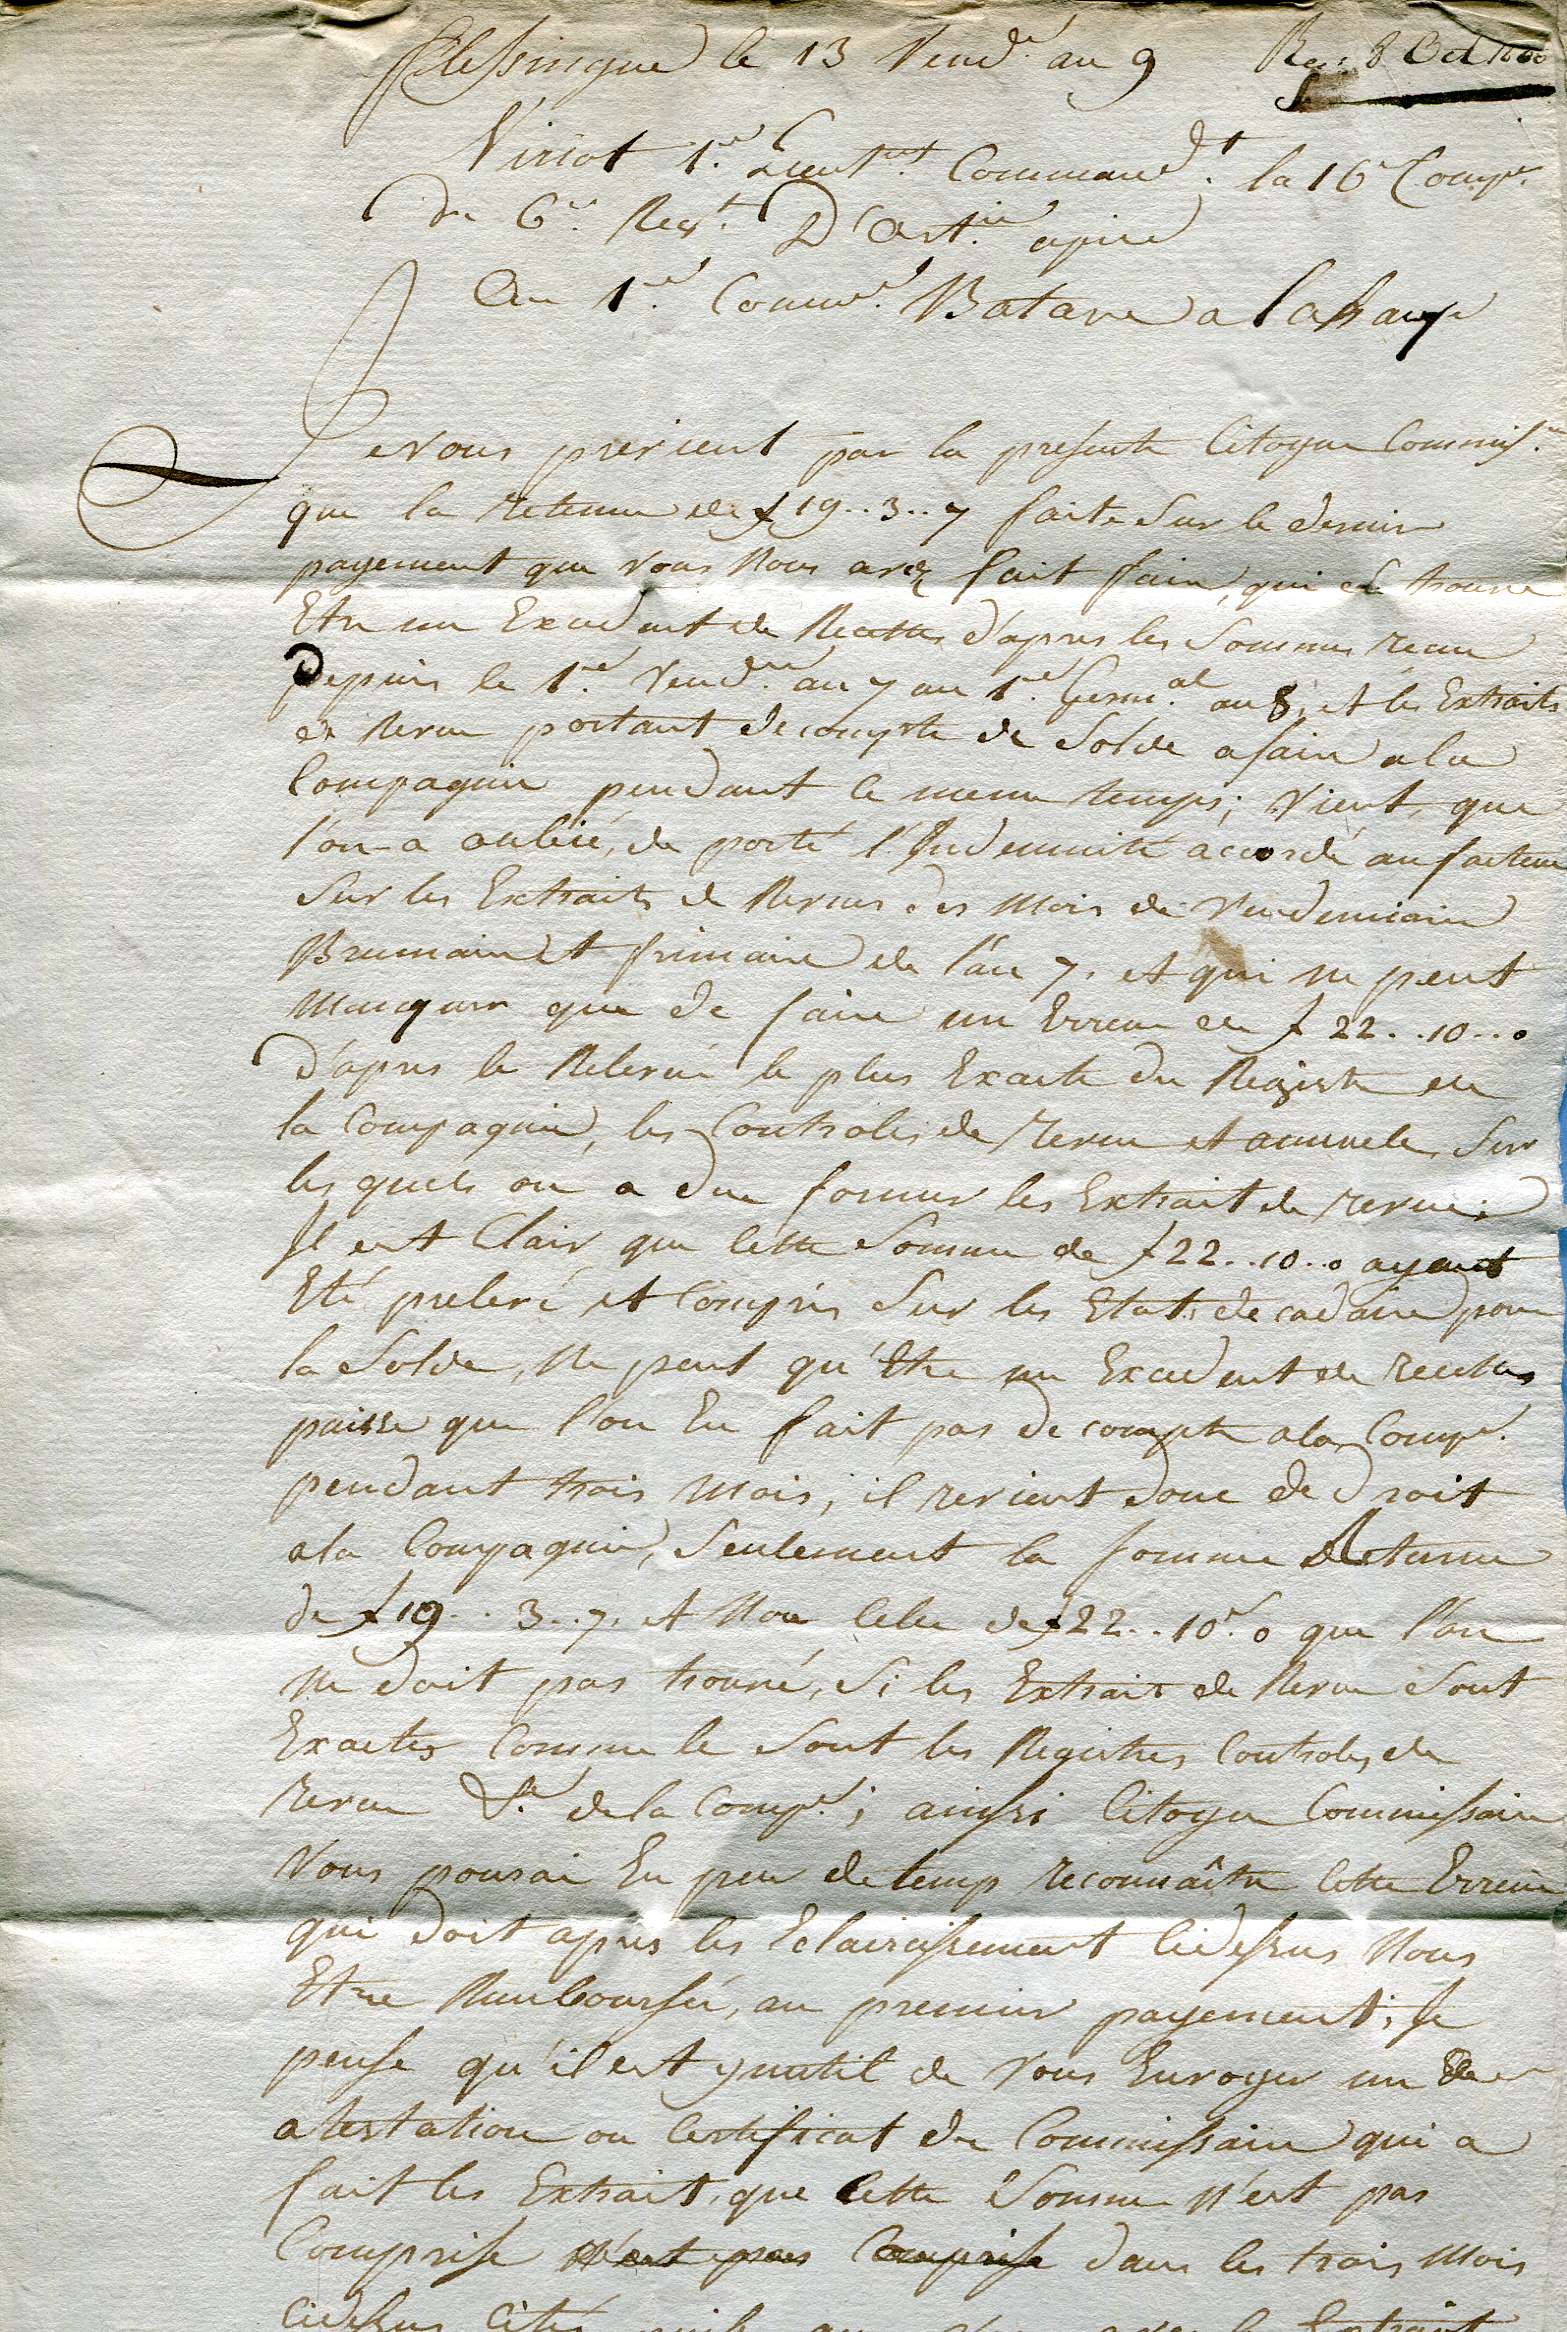 Flessingue le 13 Vend.re an 9 Rec. 8 Oct 1800
Viriot 1.er Lieut.nt Command.t la 16.e Comp.e
du 6.e Reg.t D'Art.ie apied
Au 1.er Comm.re Batave a lahaye
Je vous previent par la presente Citoyen Commis.re
que la retenue de f 19..3..7 faite Sur le dernier
payement que vous Nous avez fait faire, qui se trouve
Etre un Excedent de Recettes d'apres les Sommes recue
Depuis le 1.er Vend.re an 7 au 1.er Germ.al an 8, et les Extraits
de Revue portant decompte de Solde afaire a la
Compagnie pendant le meme temps; Vient, que
l'on a oublié, de porté l'Indemnité accordé au facteur
Sur les Extraits de Revues des Mois de Vendemiaire
Brumaire et frimaire de l'an 7, et qui ne peut
Manquer que de faire un Erreur de f 22..10..0
D'apres le Relevé le plus Exacte du Registre de
la Compagnie, les Controles de revue et annuele, Sur
les quels on a due former les Extrait de revue;
Il est Clair, que Cette Somme de f 22..10..0 ayant
Eté prelevé et Compris Sur les Etats de cadaire pour
la Solde, Ne peut qu'Etre un Excedent de recettes
puisse que l'on En fait pas decompte a la Comp.e
pendant trois Mois, il revient donc de droit
a la Compagnie, Seulement la somme Retenue
de f 19..3..7, et Non Celle de f 22..10..0 que l'on
Ne doit pas trouvé, Si les Extrait de Revue Sont
Exactes Comme le Sont les Registres Controles de
revue &.a de la Comp.e; ainssi Citoyen Commissaire
Vous pouvai En peu de temp reconnaître Cette Erreur
qui doit apres les Eclaircissement Cidessus Nous
Etre Rembourssé, au premier payement, Je
pense qu'il est ynutil de Vous Envoyer un
atestation ou Certificat du Commissaire qui a
fait les Extrait, que Cette Somme N'est pas
Comprise N'est pas Comprise dans les trois Mois
Cidessus Cités